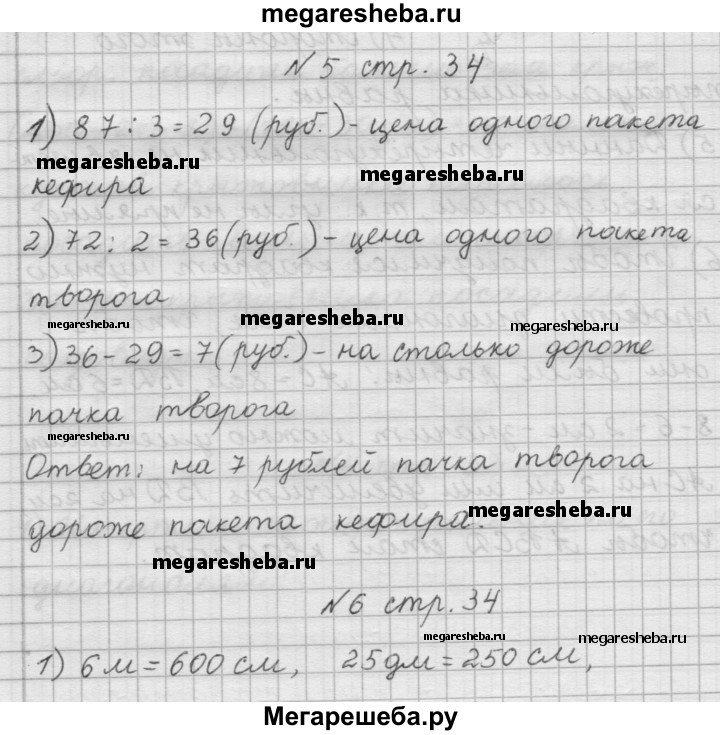 megaresheba.ru
№5 стр. 34
1) 87 : 3 = 29 (руб.) - цена одного пакета
megaresheba.ru
megaresheba.ru
кефира
2) 72 : 2 = 36 (руб.) - цена одного пакета
творога
megaresheba.ru
megaresheba.ru
megaresheba.ru
3) 36 - 29 = 7 (руб.) - на столько дороже
пачка творога
megaresheba.ru
Ответ: на 7 рублей пачка творога
megaresheba.ru
дороже пакета кефира.
megaresheba.ru
№6 стр. 34
megaresheba.ru
megaresheba.ru
1) 6 м = 600 см, 25 дм = 250 см,
Мегарешеба.ру